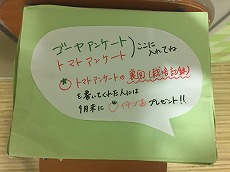 ゴーヤアンケート
トマトアンケート
ここに
入れてね
トマトアンケートの裏面
を書いてくれた人には
9月末に
プレゼント!!